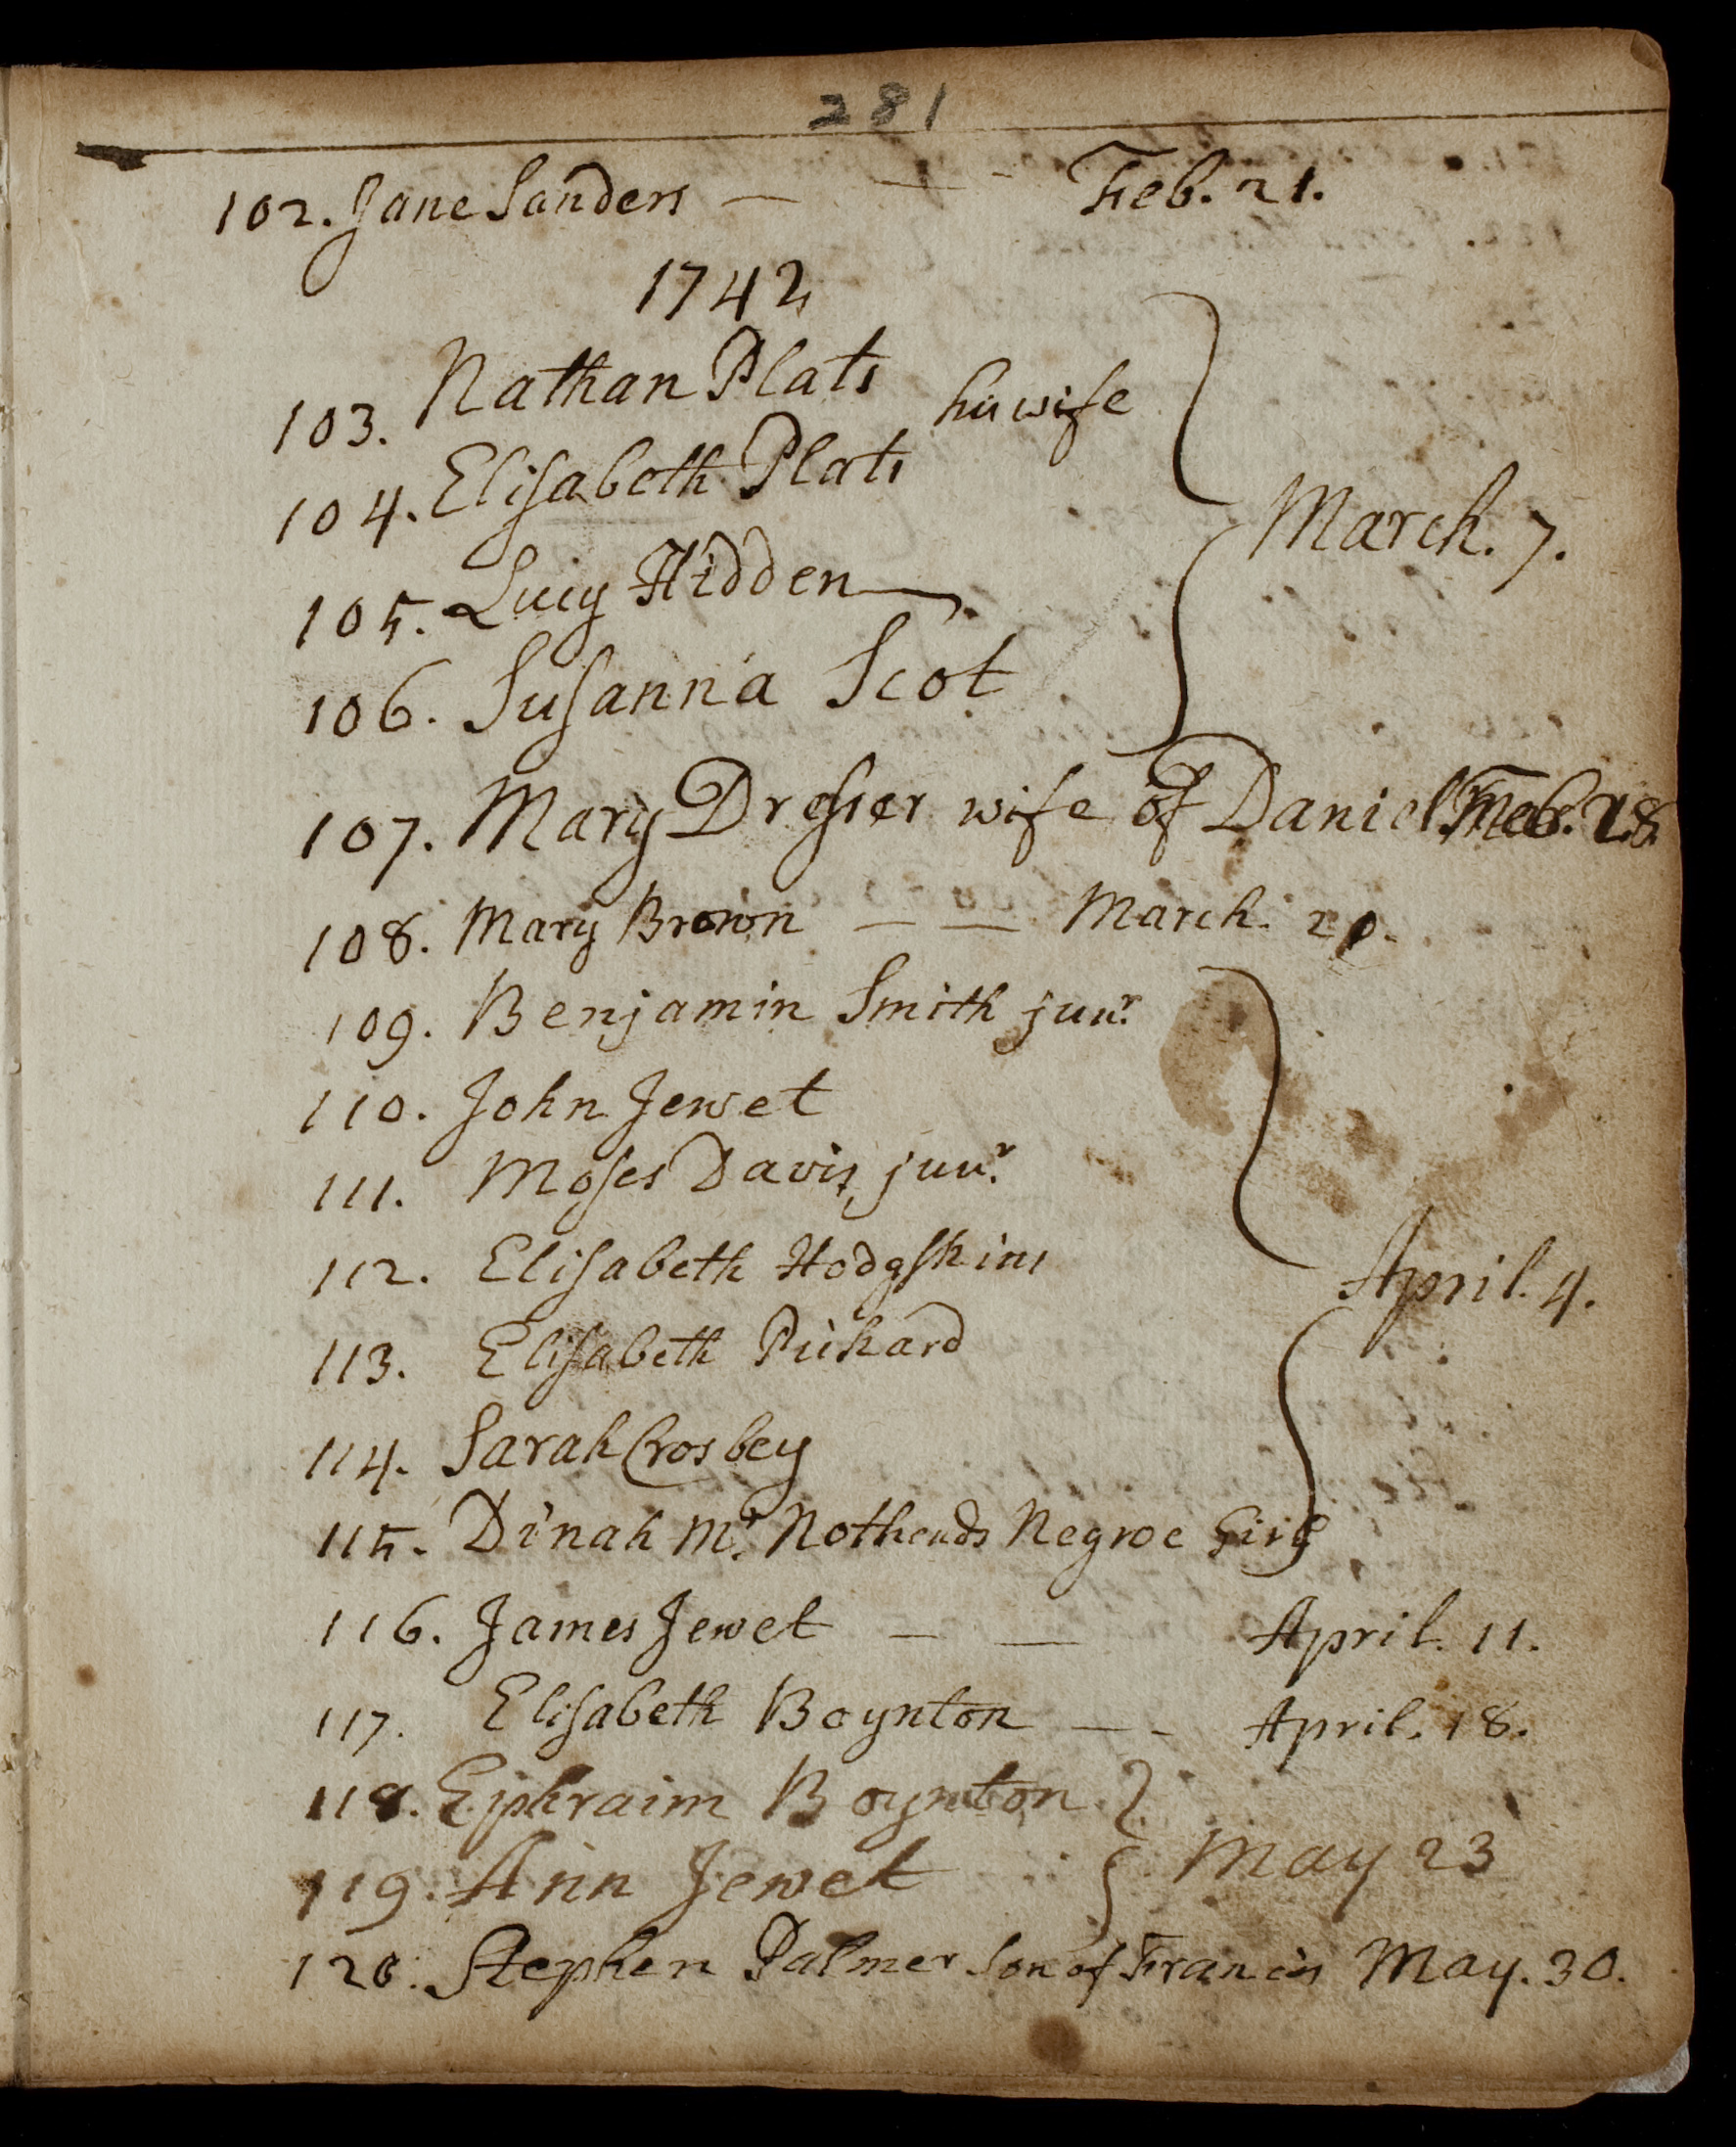 281
102. Jane Sanders — — - Feb. 21.
1742
103. Nathan Plats
his wife
104. Elisabeth Plats
March. 7.
105. Lucy Hidden
106. Susanna Scot
107. Mary Dresser wife of Daniel Feb. 28
108. Mary Brown — — March. 20.
109. Benjamin Smith junr.
110. John Jewet
111. Moses Davis, junr.
112. Elisabeth Hodgskins
April. 4.
113. Elisabeth Pickard
114. Sarah Crosbey
115. Dinah Mr. Nothends Negroe Girl
116. James Jewet — — April. 11.
117. Elisabeth Boynton — - April. 18.
118. Ephraim Boynton
May 23
119. Ann Jewet
120. Stephen Palmer son of Francis May. 30.